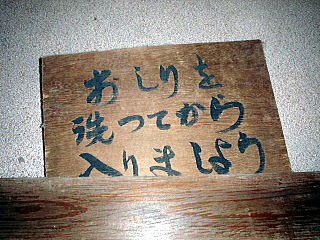 おしりを
洗ってから
入りましょう